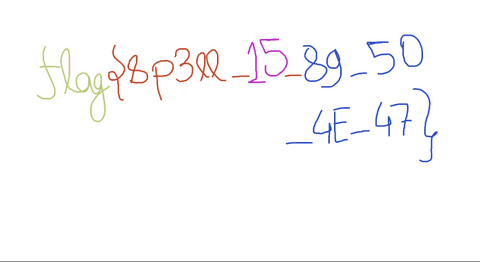 flag{8p3ll_15_89_50
_4E_47}